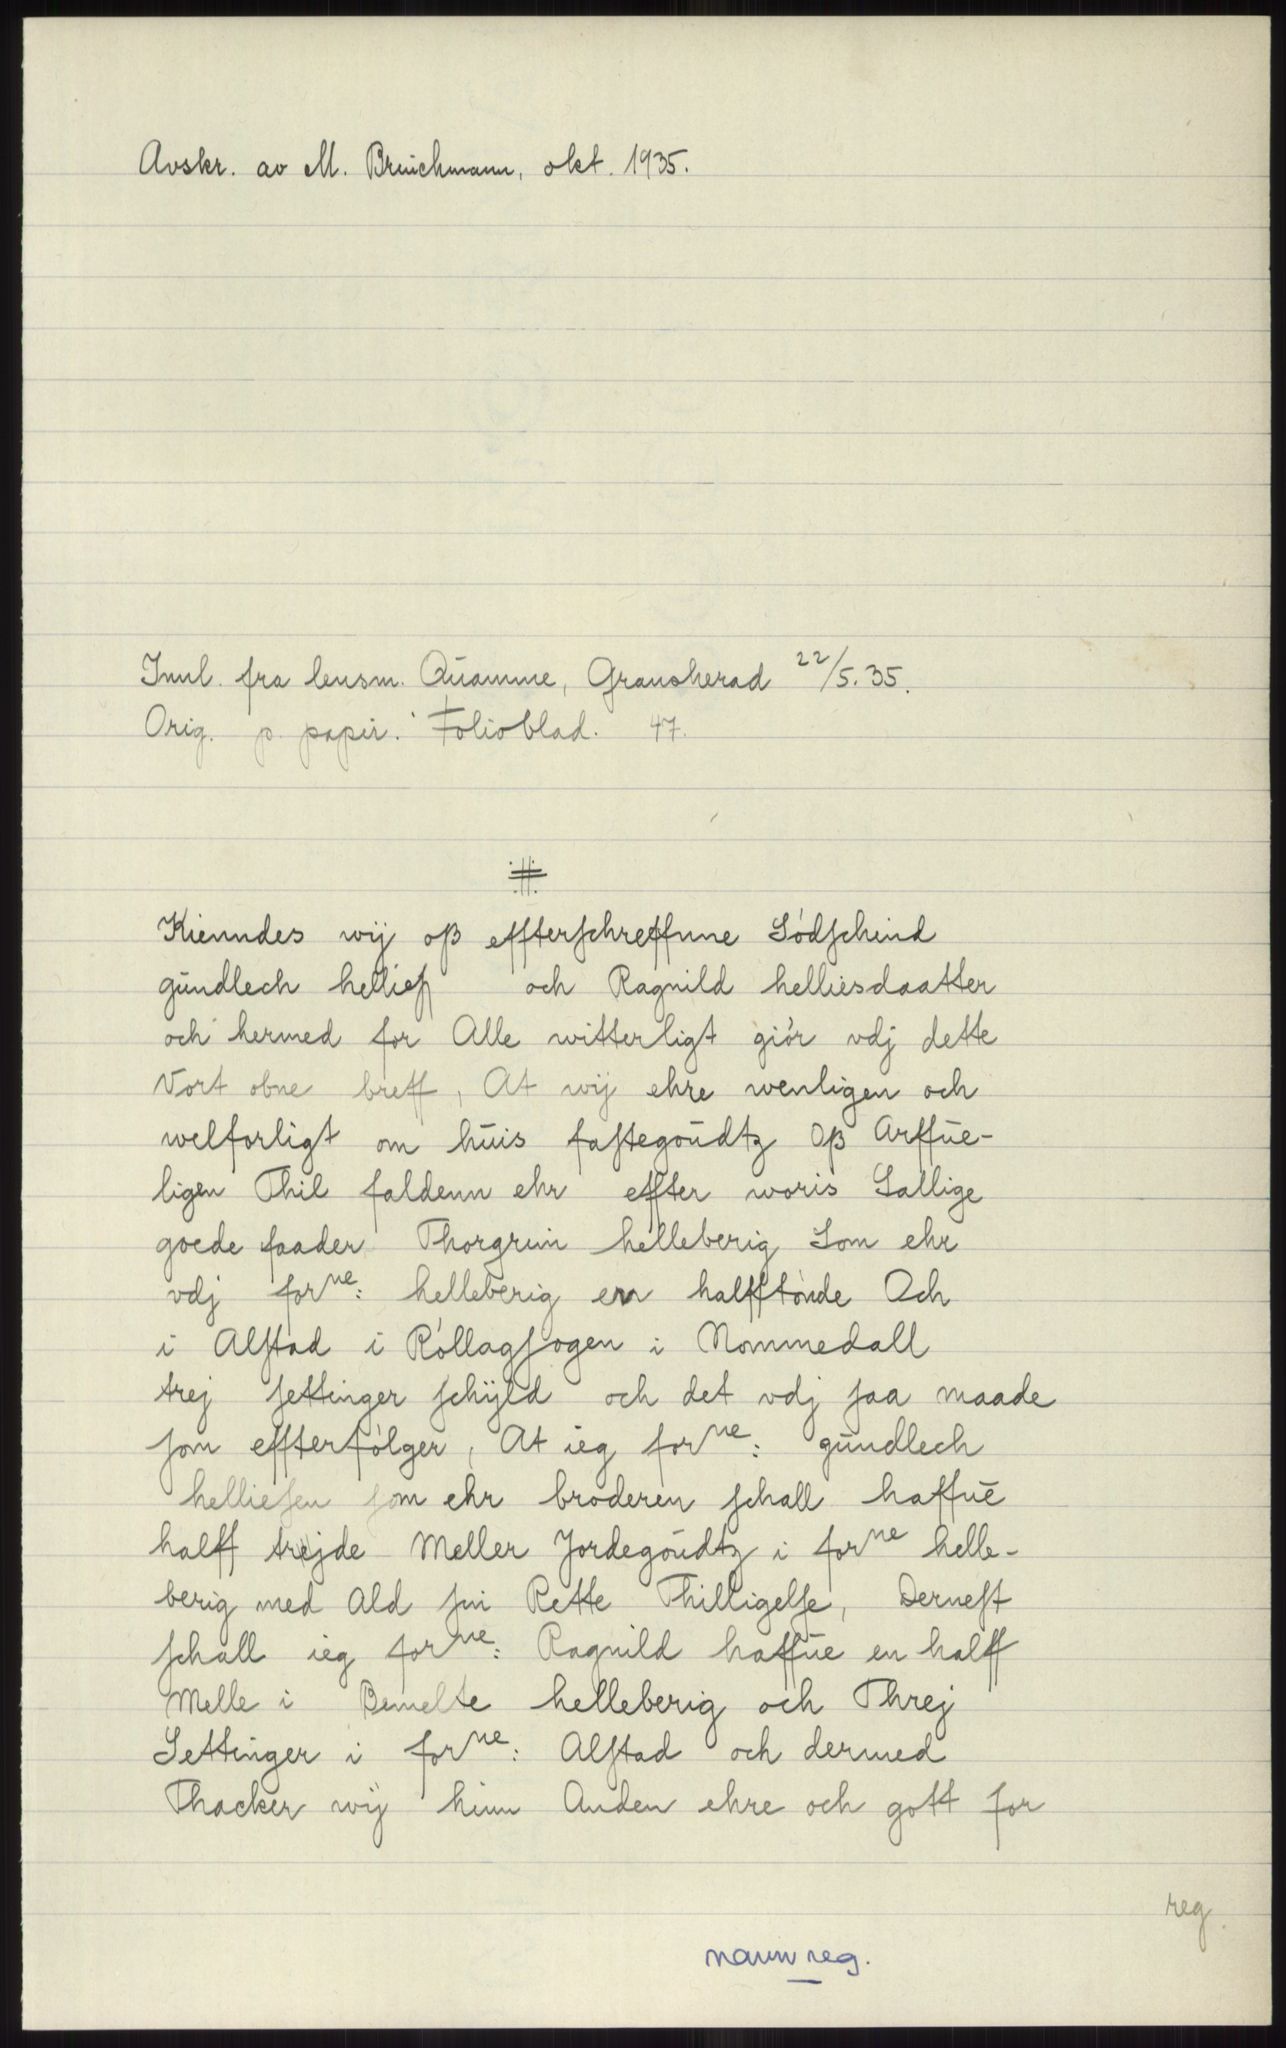 Avskr. av M. Bruichmann, okt. 1935.
Innl. fra lensm. Quamme, Gransherad 22/5. 35.
Orig. p. papir. Folioblad. 47.
Kienndes wij oß effterschreffnne Södschind
gundlech hellies och Ragnild helliesdaatter
och hermed for Alle witterligt giör vdj dette
Vort obne breff, At wij ehre wenligen och
welforligt om huis fastegoudtz Oß Arffue-
ligen Thil faldenn ehr effter woris Sallige
goede faader Thorgrim helleberig Som ehr
vdj forne: helleberig en halfftönde Och
i Alstad i Röllagsogen i Nommedall
trej settinger schyld och det vdj saa maade
som effterfölger, At ieg forne: gundlech
helliesen som ehr broderen schall haffue
halff trejde Meller Jordegoudtz i forne helle-
berig med Ald sin Rette Thilligelse, Dernest
schall ieg forne: Ragnild haffue en halff
Melle i Bemelte helleberig och Threj
Settinger i forne: Alstad och dermed
Thacker wij hinn Anden ehre och gott for
reg.
navnreg.